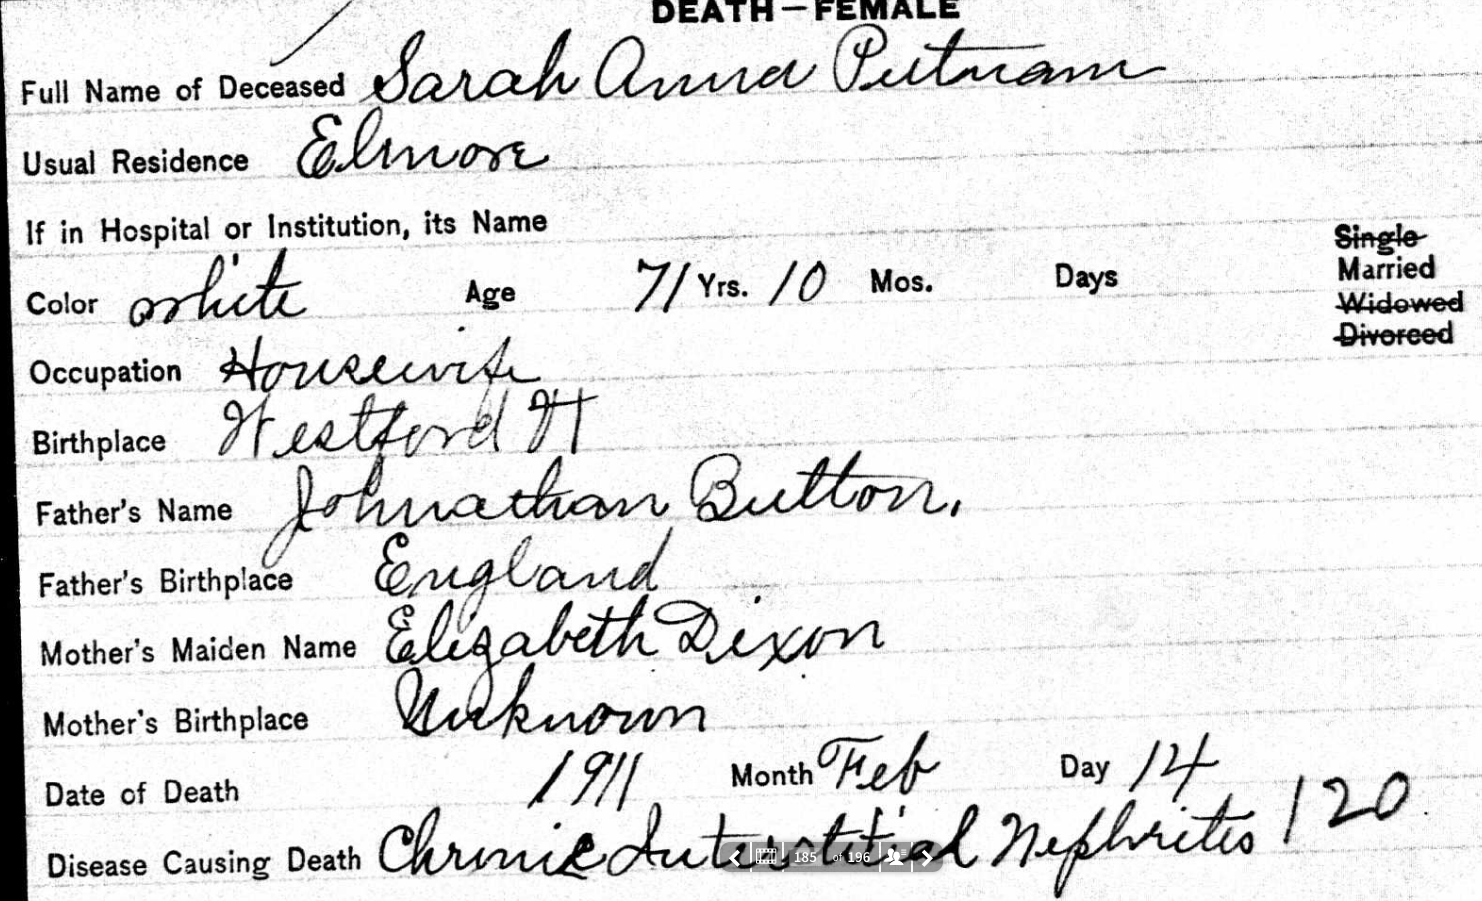 DEATH—FEMALE
Full Name of Deceased Sarah Anna Putnam
Usual Residence Elmore
If in Hospital or Institution, its Name
Single
Color white Age 71 Yrs. 10 Mos. Days Married
Widowed
Divorced
Occupation Housewife
Birthplace Westford Vt
Father's Name Johnathan Button.
Father's Birthplace England
Mother's Maiden Name Elizabeth Dixon
Mother's Birthplace Unknown
Date of Death 1911 Month Feb Day 14
Disease Causing Death Chronic Interstitial Nephrites 120
185 of 196